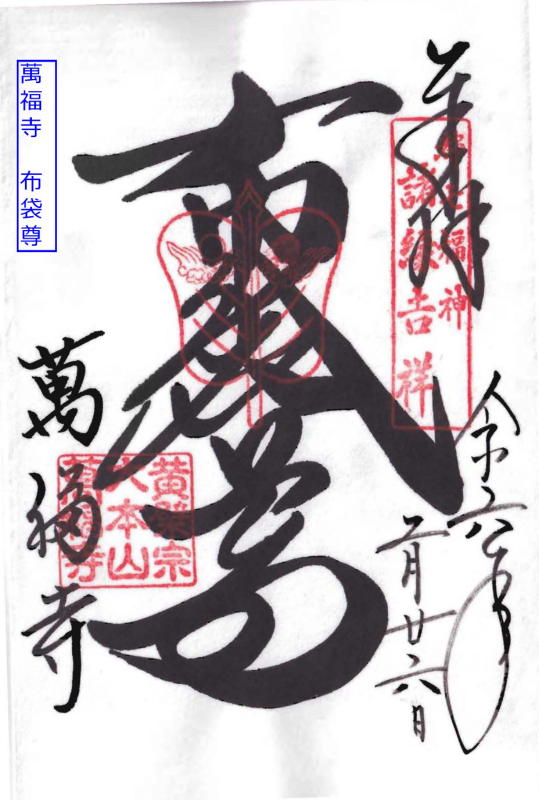 奉拝
都七福神
諸縁吉祥
令和六年
二月廿六日
布袋尊
黄檗宗
大本山
萬福寺
萬福寺
萬福寺 布袋尊